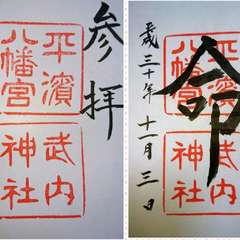 参拝
平濱
八幡宮
武内
神社
命
平成三十年十一月三日
平濱
八幡宮
武内
神社